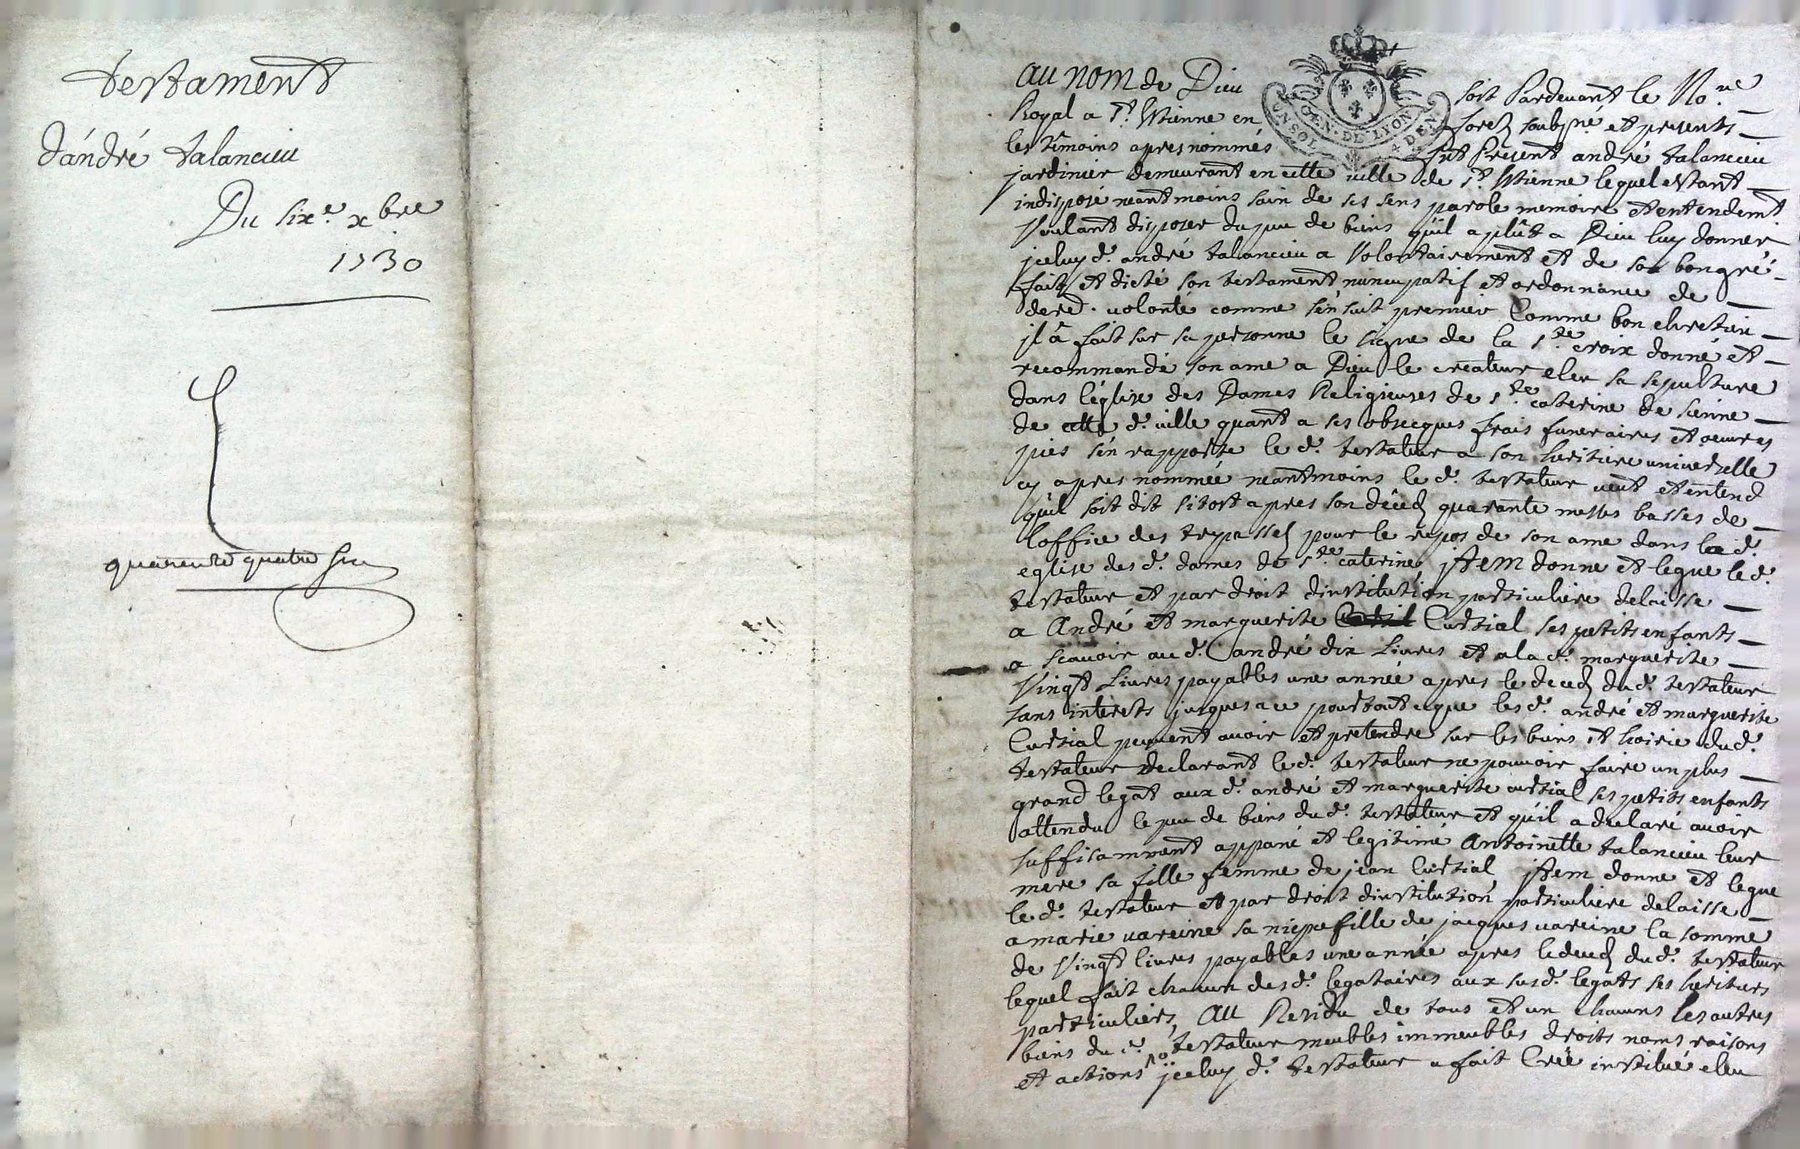 testament
d'andré talancieu
Du six.e xbre
1730
quarente quatre
au nom de Dieu soit Pardevant le No.re
Royal a St. Etienne en forez soubsne. et presents
les témoins apres nommés fut Présent andré talancieu
jardinier demeurant en cette ville de St. Etienne lequel estant
indisposé neantmoins sain de ses sens parole memoire et entendemt
Voulant disposer du peu de biens qu'il a plût a Dieu luy donner
jceluy d. andré talancieu a Volontairement et de son bon gré
fait et dicté son testament nuncupatif et ordonnance de
volonté comme s'en suit premier Comme bon chretien
jl à fait sur sa personne le signe de la Ste. croix donné et
recommandé son ame a Dieu le createur eleu sa sepulture
dans l'église des Dames Religieuses de Ste. caterine de sienne
de cette d. ville quant a ses obsecques frais funeraires et oeuvres
pies s'én rapporte le d. testateur a son heritiere universelle
cy apres nommée neantmoins le d. testateur veut et entend
qu'il soit dit sitost apres son décéd quarante messes basses de
l'office des trepassés pour le repos de son ame dans la d.
eglise des d. dames de Ste. caterine jtem donne et legue le d.
testateur et par droit d'institution particuliere delaisse
a André et marguerite Curtial ses petits enfants
a scavoir au d. andré dix Livres et a la d. marguerite
Vingt Livres payables une année apres le deced du d. testateur
sans intérets jusques a ce pour tout ce que les d. andré et marguerite
Curtial peuvent avoir et pretendre sur les biens et hoirie du d.
testateur declarant le d. testateur ne pouvoir faire un plus
grand legat aux d. andré et marguerite curtial ses petits enfants
attendu le peu de biens du d. testateur et qu'il a declaré avoir
suffisamment appané et legitimé antoinette talancieu leur
mere sa fille femme de jean Curtial jtem donne et legue
le d. testateur et par droit d'institution particuliere delaisse
a marie vareine sa niepce fille de jacques vareine la somme
de Vingt livres payables une année apres le deced du d. testateur
lequel fait chacun des d. legataires aux susd. legats ses heritiers
particuliers, au Residu de tous et un chacuns les autres
biens du d. testateur meubles immeubles droits noms raisons
et actions jceluy d. testateur a fait Creé institué eleu